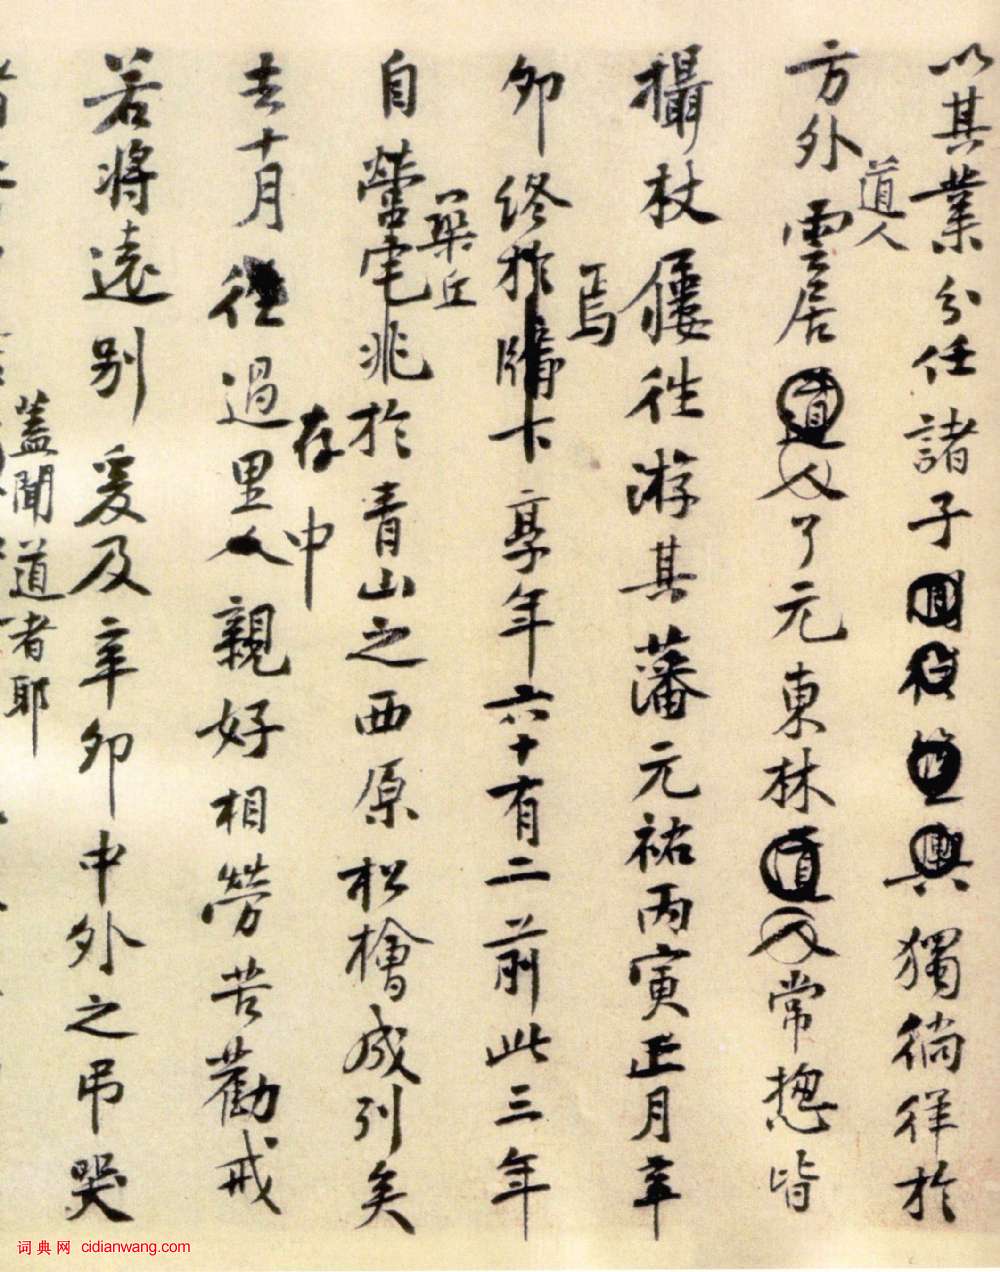 以其業分任諸子獨徜徉於
方外雲居道人了元東林道人常揔皆
道人
攝杖屨往游其藩元祐丙寅正月辛
焉
卯終於牖下享年六十有二前此三年
自營宅兆於青山之西原松檜成列矣
築丘
去十月往過里人親好相勞苦勸戒
存中
若將遠别爰及辛卯中外之吊哭
蓋聞道者耶
词典网 cidianwang.com